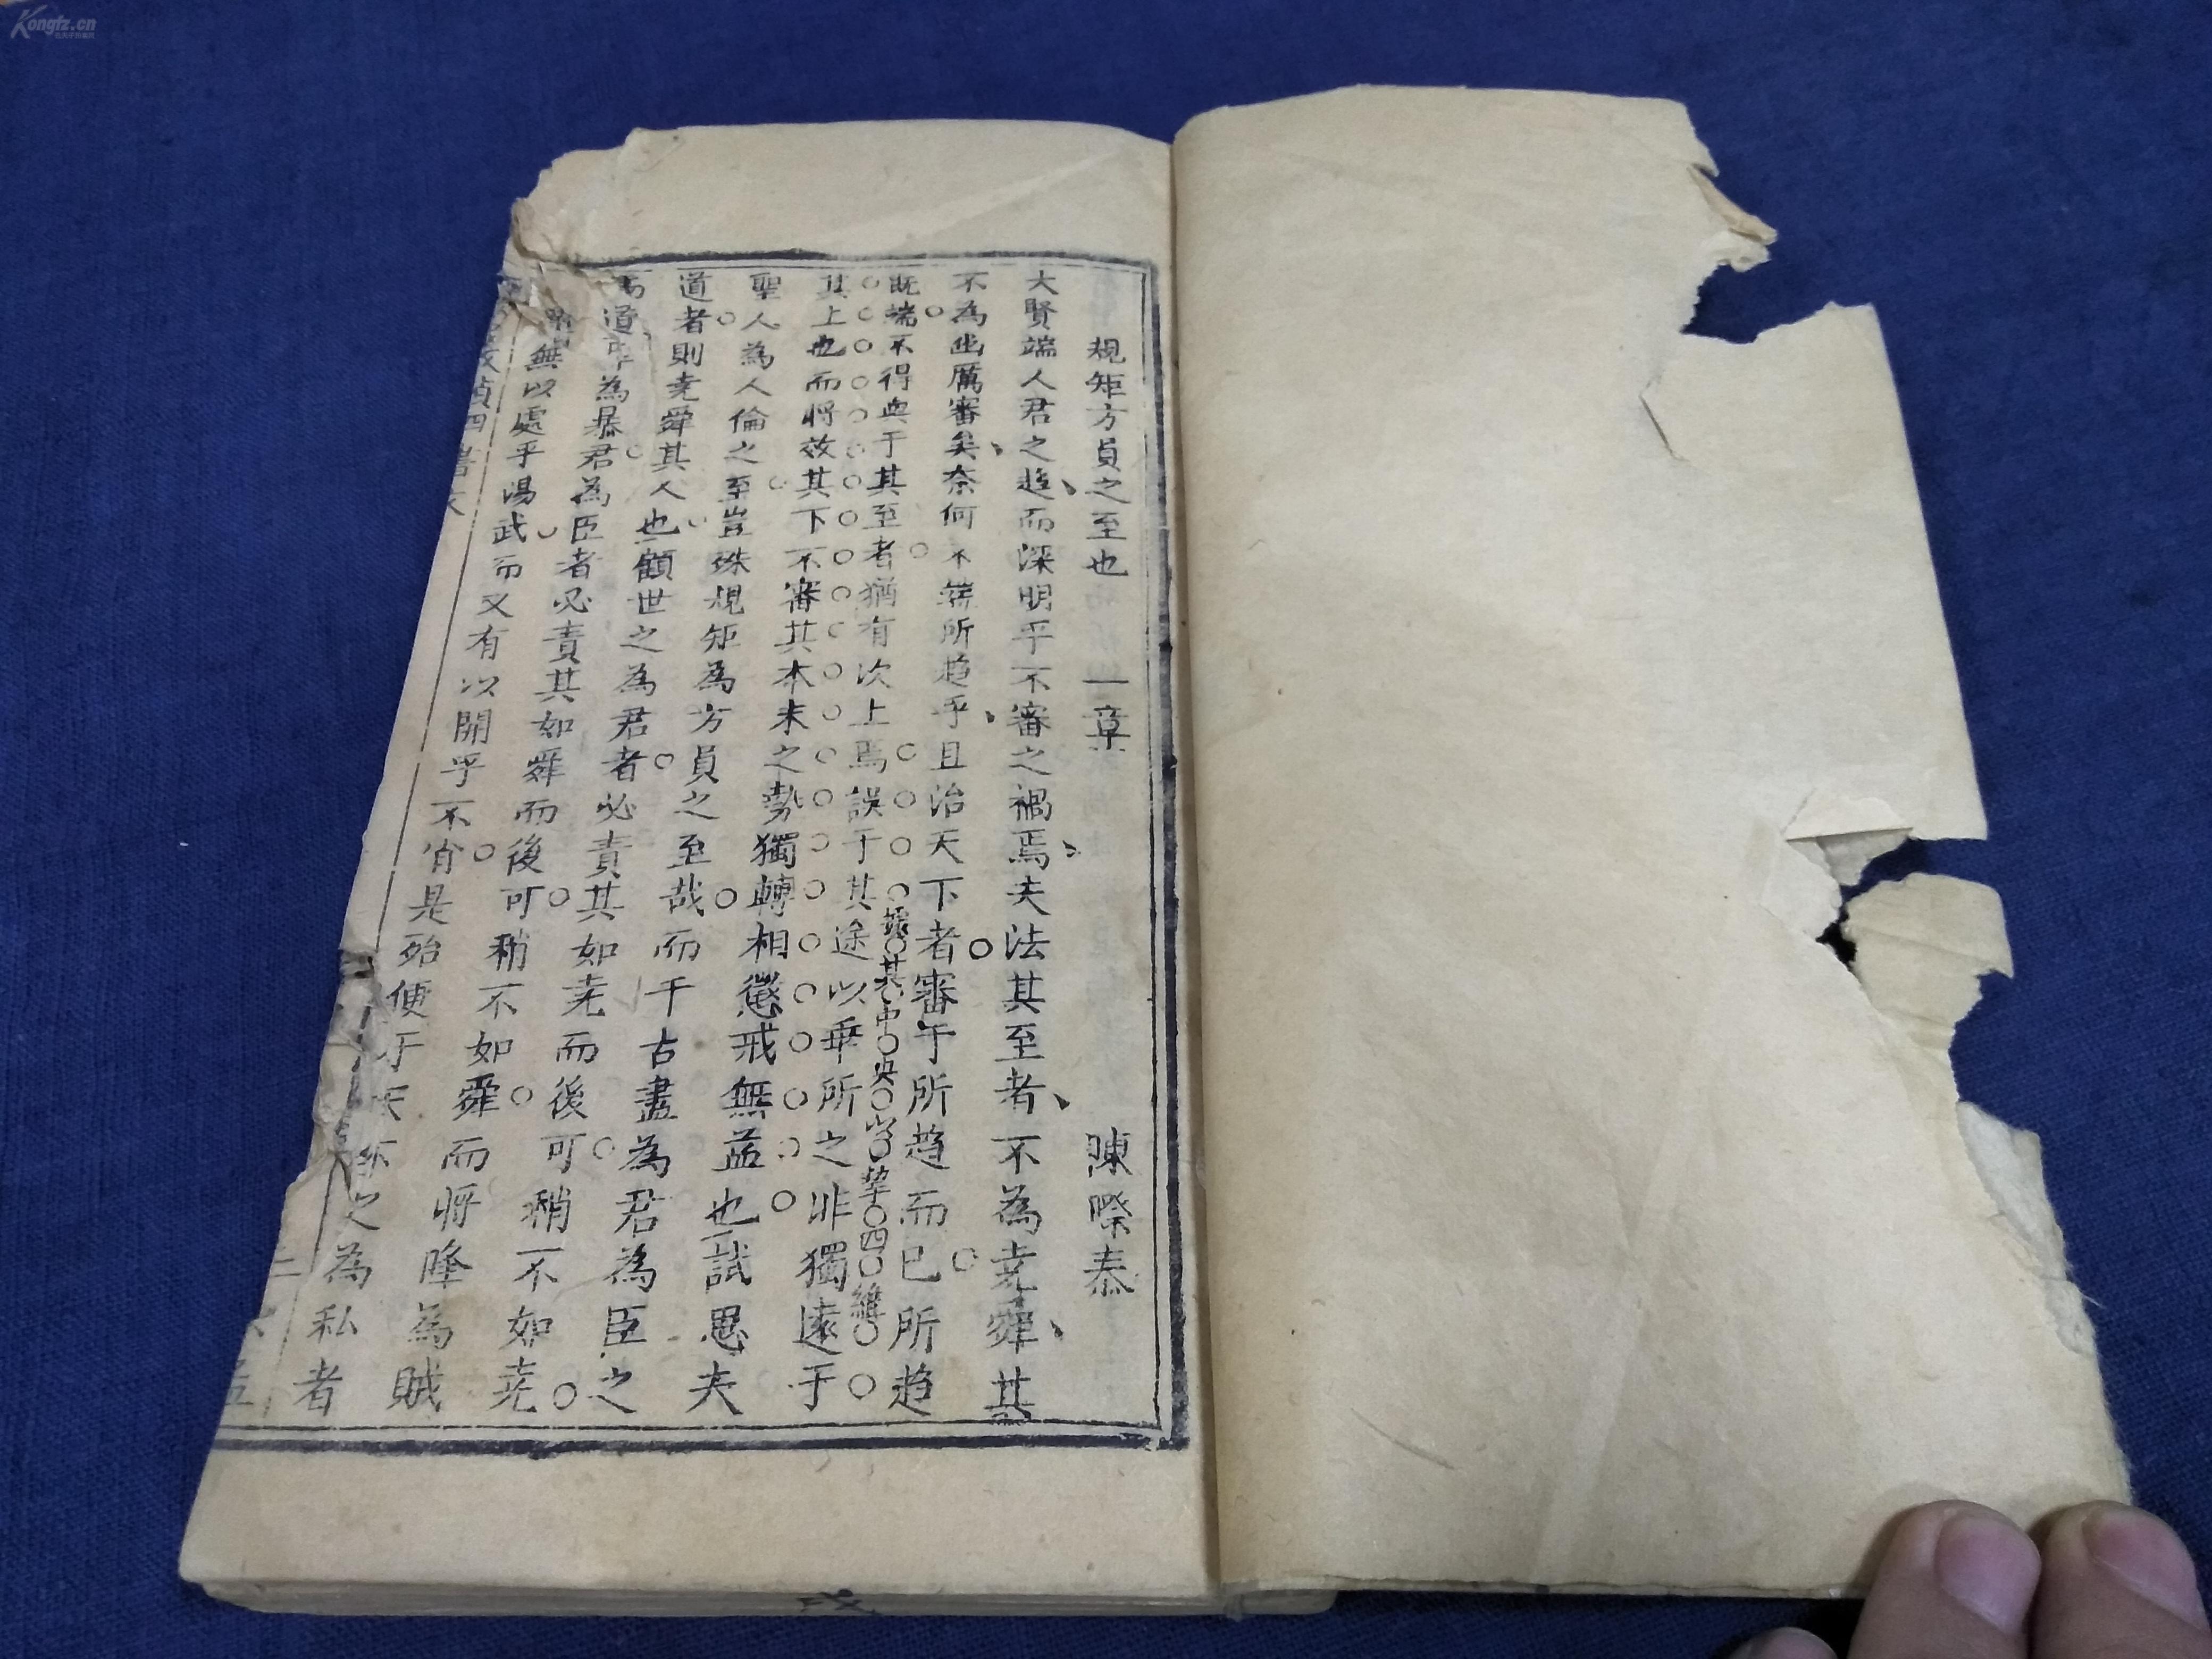 規矩方員之至也 一章 陳際泰
大賢端人君之趋而深明乎不審之禍焉夫法其至者不為尭舜其
不為幽厲審矣奈何不端所趋乎且治天下者審于所趋而已所趋
既端不得與于其至者猶有次上焉誤于其途以乖所之非獨遠于
據其中央以挈四維
其上也而將效其下不審其本末之勢獨轉相懲戒無益也試思夫
聖人為人倫之至豈殊規矩為方員之至哉而千古盡為君為臣之
道者則尭舜其人也顧世之為君者必責其如尭而後可稍不如尭
道即為暴君為臣者必責其如舜而後可稍不如舜而將降為賊
無以處乎湯武而又有以開乎不肖是殆便于天 之為私者
四書文
Kongfz.cn